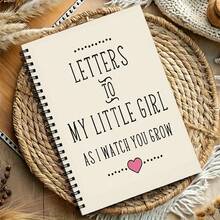 LETTERS
TO
MY LITTLE GIRL
AS I WATCH YOU GROW